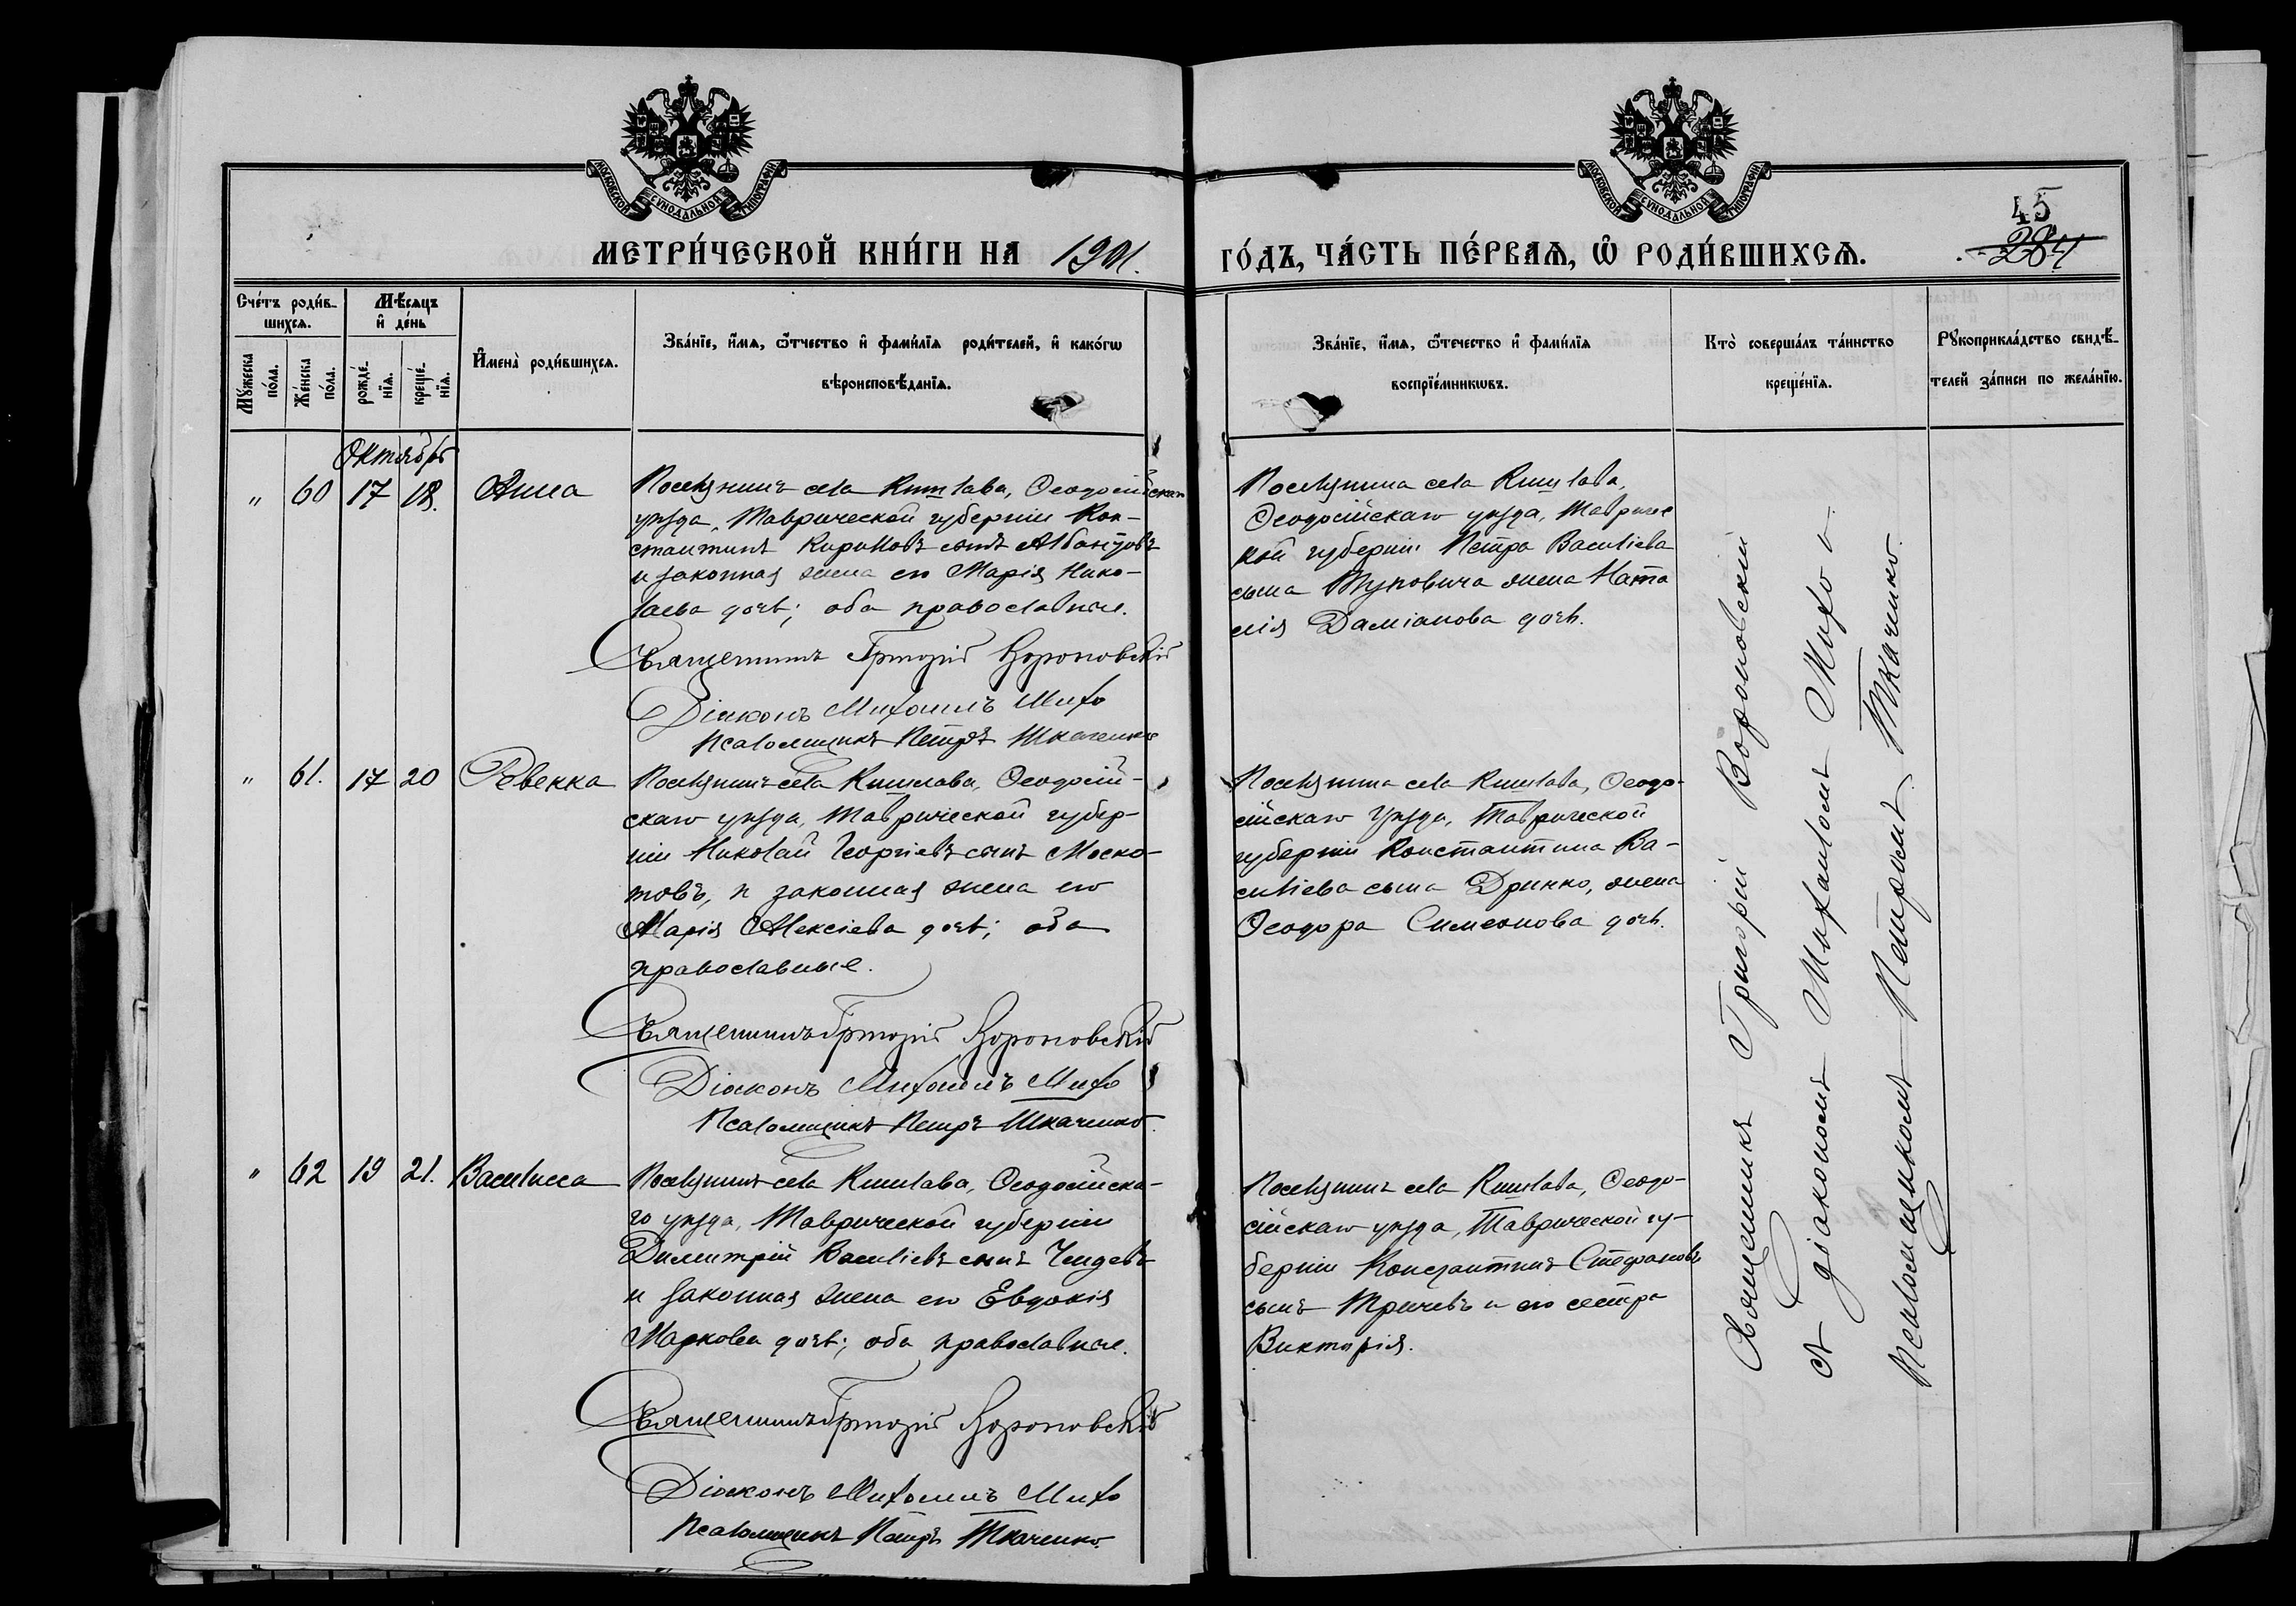 МОСКОВСКОЙ СѴНОДАЛЬНОЙ ТИПОГРАФІИ
МОСКОВСКОЙ СѴНОДАЛЬНОЙ ТИПОГРАФІИ
45
284
МЕТРИ́ЧЕСКОЙ КНИ́ГИ НА 1901. ГО́ДЪ, ЧА́СТЬ ПЕ́РВАѦ, Ѡ РОДИ́ВШИХСѦ.
Сче́тъ роди́в-
шихсѧ.
Мꙋ́жеска по́ла.
Же́нска по́ла.
Мѣ́сѧцъ
и҆ де́нь
рожде́-
нїѧ.
креще́-
нїѧ.
И҆мена̀ роди́вшихсѧ.
Зва́нїе, и҆́мѧ, ѻ҆́тчество и҆ фами́лїѧ роди́телей, и҆ како́гѡ
вѣроисповѣ́данїѧ.
Зва́нїе, и҆́мѧ, ѻ҆́течество и҆ фами́лїѧ
воспрїе́мникѡвъ.
Кто̀ соверша́лъ та́инство
креще́нїѧ.
Рꙋкоприкла́дство свидѣ́-
телей за́писи по жела́нїю.
Октябрь
" 60 17 18. Анна
Поселянинъ села Кишлава, Ѳеодосійскаго
уѣзда, Таврической губерніи Кон-
стантинъ Кириловъ сынъ Албантовъ
и законная жена его Марія Нико-
лаева дочь; оба православные.
Священникъ Григорій Вороновскій
Діаконъ Михаилъ Михо
Псаломщикъ Петръ Ткаченко
Поселянина села Кишлава,
Ѳеодосійскаго уѣзда, Тавричес
кой губерніи Петра Васильева
сына Пуповича жена Ната
лія Даміанова дочь.
" 61. 17 20 Ревекка
Поселянинъ села Кишлава, Ѳеодосій-
скаго уѣзда, Таврической губер-
ніи Николай Георгіевъ сынъ Моско-
товъ, и законная жена его
Марія Алексіева дочь; оба
православные.
Священникъ Григорій Вороновскій
Діаконъ Михаилъ Михо
Псаломщикъ Петръ Ткаченко.
Поселянина села Кишлава, Ѳеодо-
сійскаго уѣзда, Таврической
губерніи Константина Ва-
сильева сына Дринко, жена
Ѳеодора Симеонова дочь.
" 62 19 21. Василисса
Поселянинъ села Кишлава, Ѳеодосійска-
го уѣзда, Таврической губерніи
Димитрій Васильевъ сынъ Чендевъ
и законная жена его Евдокія
Маркова дочь; оба православные.
Священникъ Григорій Вороновскій
Діаконъ Михаилъ Михо
Псаломщикъ Петръ Ткаченко.
Поселянинъ села Кишлава, Ѳеодо-
сійскаго уѣзда, Таврической гу-
берніи Константинъ Стефановъ
сынъ Тричевъ и его сестра
Викторія.
Священникъ Григорій Вороновскій
съ діакономъ Михаиломъ Михо и
псаломщикомъ Петромъ Ткаченко.